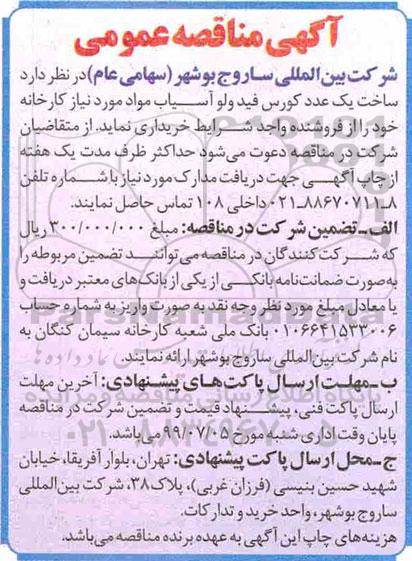 آگهی مناقصه عمومی
شرکت بین المللی ساروج بوشهر (سهامی عام) در نظر دارد
ساخت یک عدد کورس فید ولو آسیاب مواد مورد نیاز کارخانه
خود را از فروشنده واجد شرایط خریداری نماید. از متقاضیان
شرکت در مناقصه دعوت می‌شود حداکثر ظرف مدت یک هفته
از چاپ آگهی جهت دریافت مدارک مورد نیاز با شماره تلفن
۸-۸۸۶۷۰۷۱۱-۰۲۱ داخلی ۱۰۸ تماس حاصل نمایند.
الف- تضمین شرکت در مناقصه: مبلغ ۳۰۰/۰۰۰/۰۰۰ ریال
که شرکت کنندگان در مناقصه می‌توانند تضمین مربوطه را
به صورت ضمانت‌نامه بانکی از یکی از بانک‌های معتبر دریافت و
یا معادل مبلغ مورد نظر وجه نقد به صورت واریز به شماره حساب
۰۱۰۶۶۴۱۵۳۳۰۰۶ بانک ملی شعبه کارخانه سیمان کنگان به
نام شرکت بین‌المللی ساروج بوشهر ارائه نمایند.
ب- مهلت ارسال پاکت‌های پیشنهادی: آخرین مهلت
ارسال پاکت فنی، پیشنهاد قیمت و تضمین شرکت در مناقصه
پایان وقت اداری شنبه مورخ ۹۹/۰۷/۰۵ می‌باشد.
ج- محل ارسال پاکت پیشنهادی: تهران، بلوار آفریقا، خیابان
شهید حسین بنیسی (فرزان غربی)، پلاک ۳۸، شرکت بین‌المللی
ساروج بوشهر، واحد خرید و تدارکات.
هزینه‌های چاپ این آگهی به عهده برنده مناقصه می‌باشد.